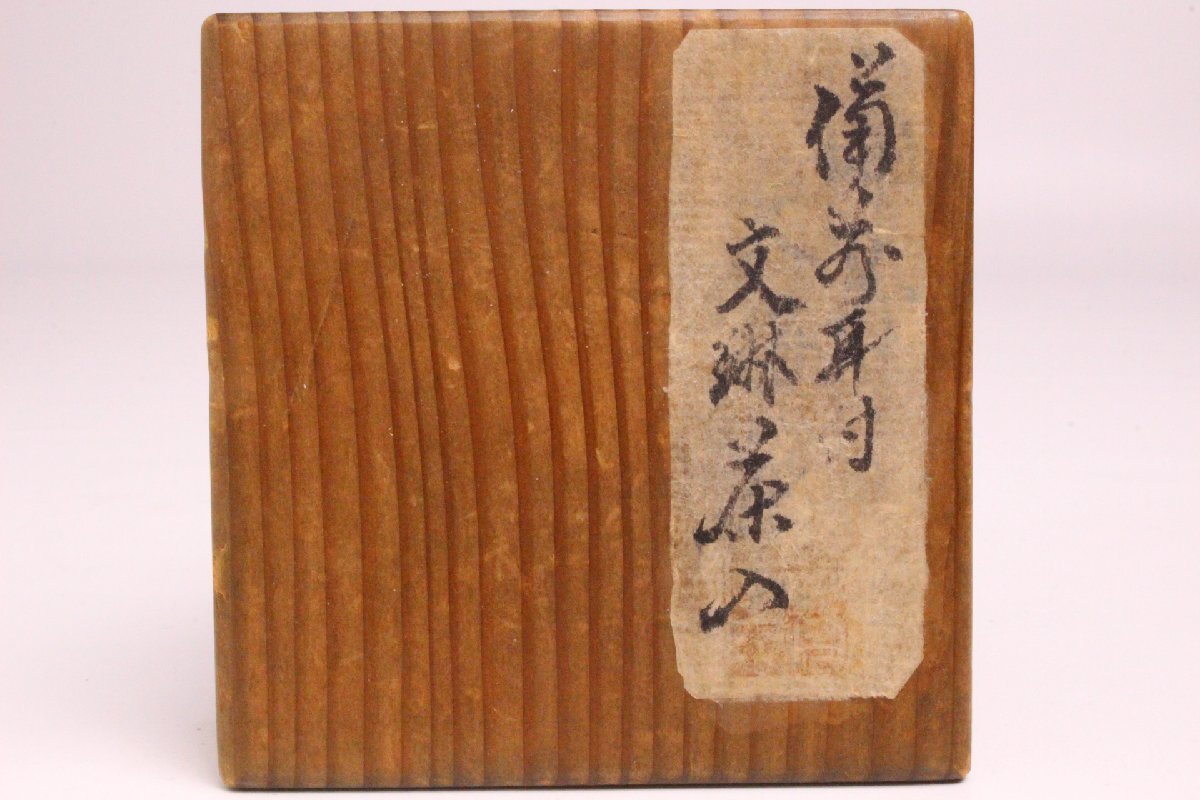 備前耳付
文琳茶入